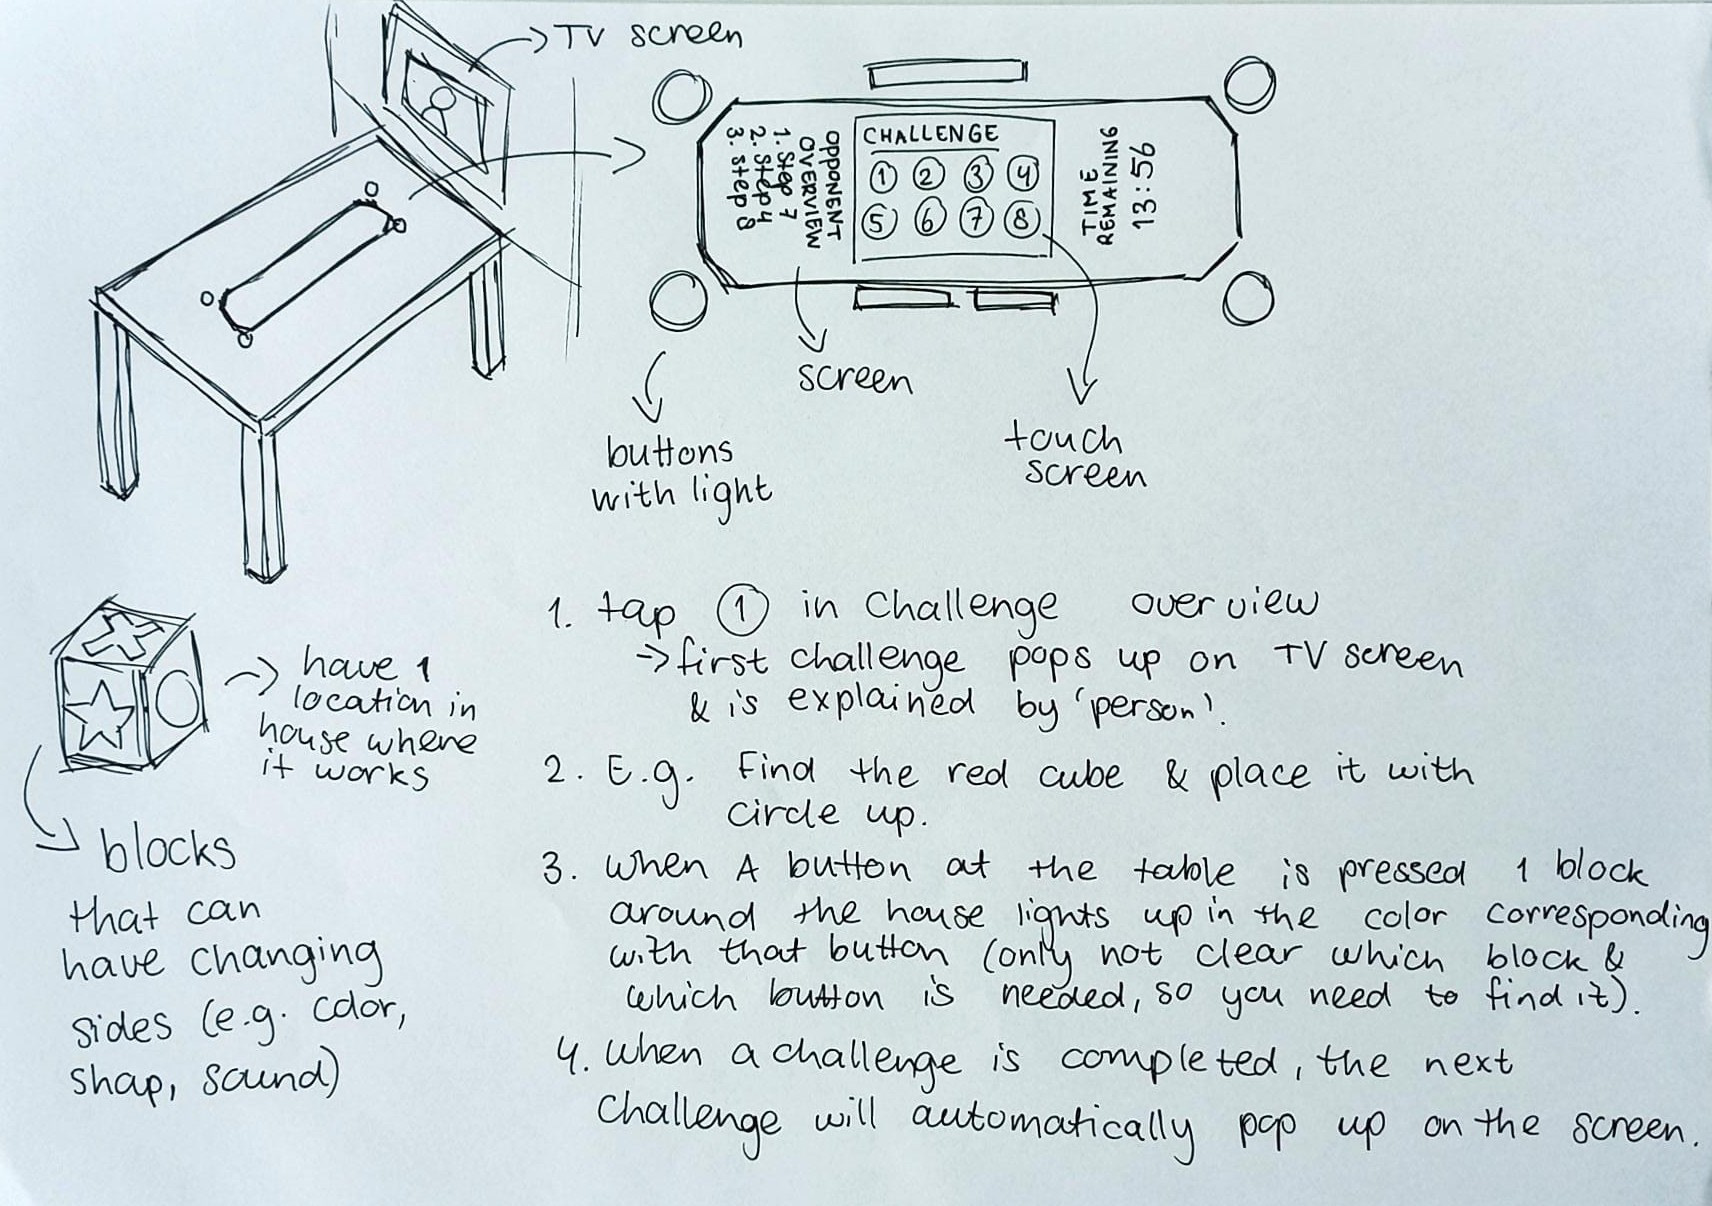 TV screen
OPPONENT
OVERVIEW
1. Step 7
2. Step 4
3. Step 8
CHALLENGE
1 2 3 4
5 6 7 8
TIME
REMAINING
13:56
buttons
with light
screen
touch
screen
have 1
location in
house where
it works
blocks
that can
have changing
sides (e.g. color,
shap, sound)
1. tap 1 in challenge overview
→ first challenge pops up on TV screen
& is explained by 'person'.
2. E.g. Find the red cube & place it with
circle up.
3. When A button at the table is pressed 1 block
around the house lights up in the color corresponding
with that button (only not clear which block &
which button is needed, so you need to find it).
4. When a challenge is completed, the next
challenge will automatically pop up on the screen.